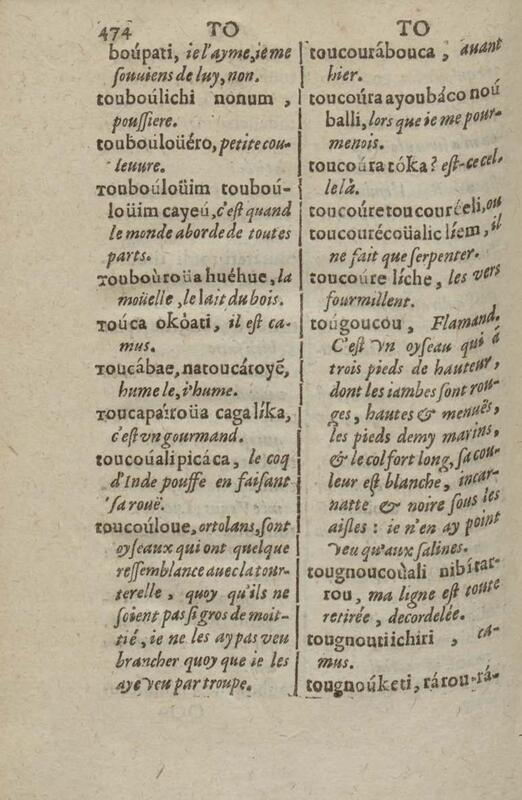 474 TO TO
boúpati, ie l'ayme, ie me
souuiens de luy, non.
touboúlichi nonum,
poussiere.
touboulloüéro, petite cou-
leuure.
Toubouloüim touboú-
loüim cayeú, c'est quand
le monde aborde de toutes
parts.
Toubouroüa huéhue, la
moüelle, le lait du bois.
Toúca okóati, il est ca-
mus.
Toucábae, natoucátoyē,
hume le, i'hume.
Toucapáiroüa cagalíka,
c'est vn gourmand.
toucoúalipicáca, le coq
d'Inde pousse en faisant
sa rouë.
toucoúloue, ortolans, sont
oyseaux qui ont quelque
ressemblance auec la tour-
terelle, quoy qu'ils ne
soient pas si gros de moit-
tié, ie ne les ay pas veu
brancher quoy que ie les
aye veu par troupe.
toucourábouca, auant
hier.
toucoúra ayoubáco noú
balli, lors que ie me pour-
menois.
toucoúra tóka? est-ce cel-
le là.
toucoúretoucouréeli, ou
toucourécoüalic líem, il
ne fait que serpenter.
toucoúre líche, les vers
fourmillent.
toúgoucou, Flamand.
C'est vn oyseau qui à
trois pieds de hauteur,
dont les iambes sont rou-
ges, hautes & menuës,
les pieds demy marins,
& le col fort long, sa cou-
leur est blanche, incar-
natte & noire sous les
aisles: ie n'en ay point
veu qu'aux salines.
tougnoucoüali nibítat-
rou, ma ligne est toute
retirée, decordelée.
tougnoutiichiri, ca-
mus.
tougnoúketi, rárou-rá-